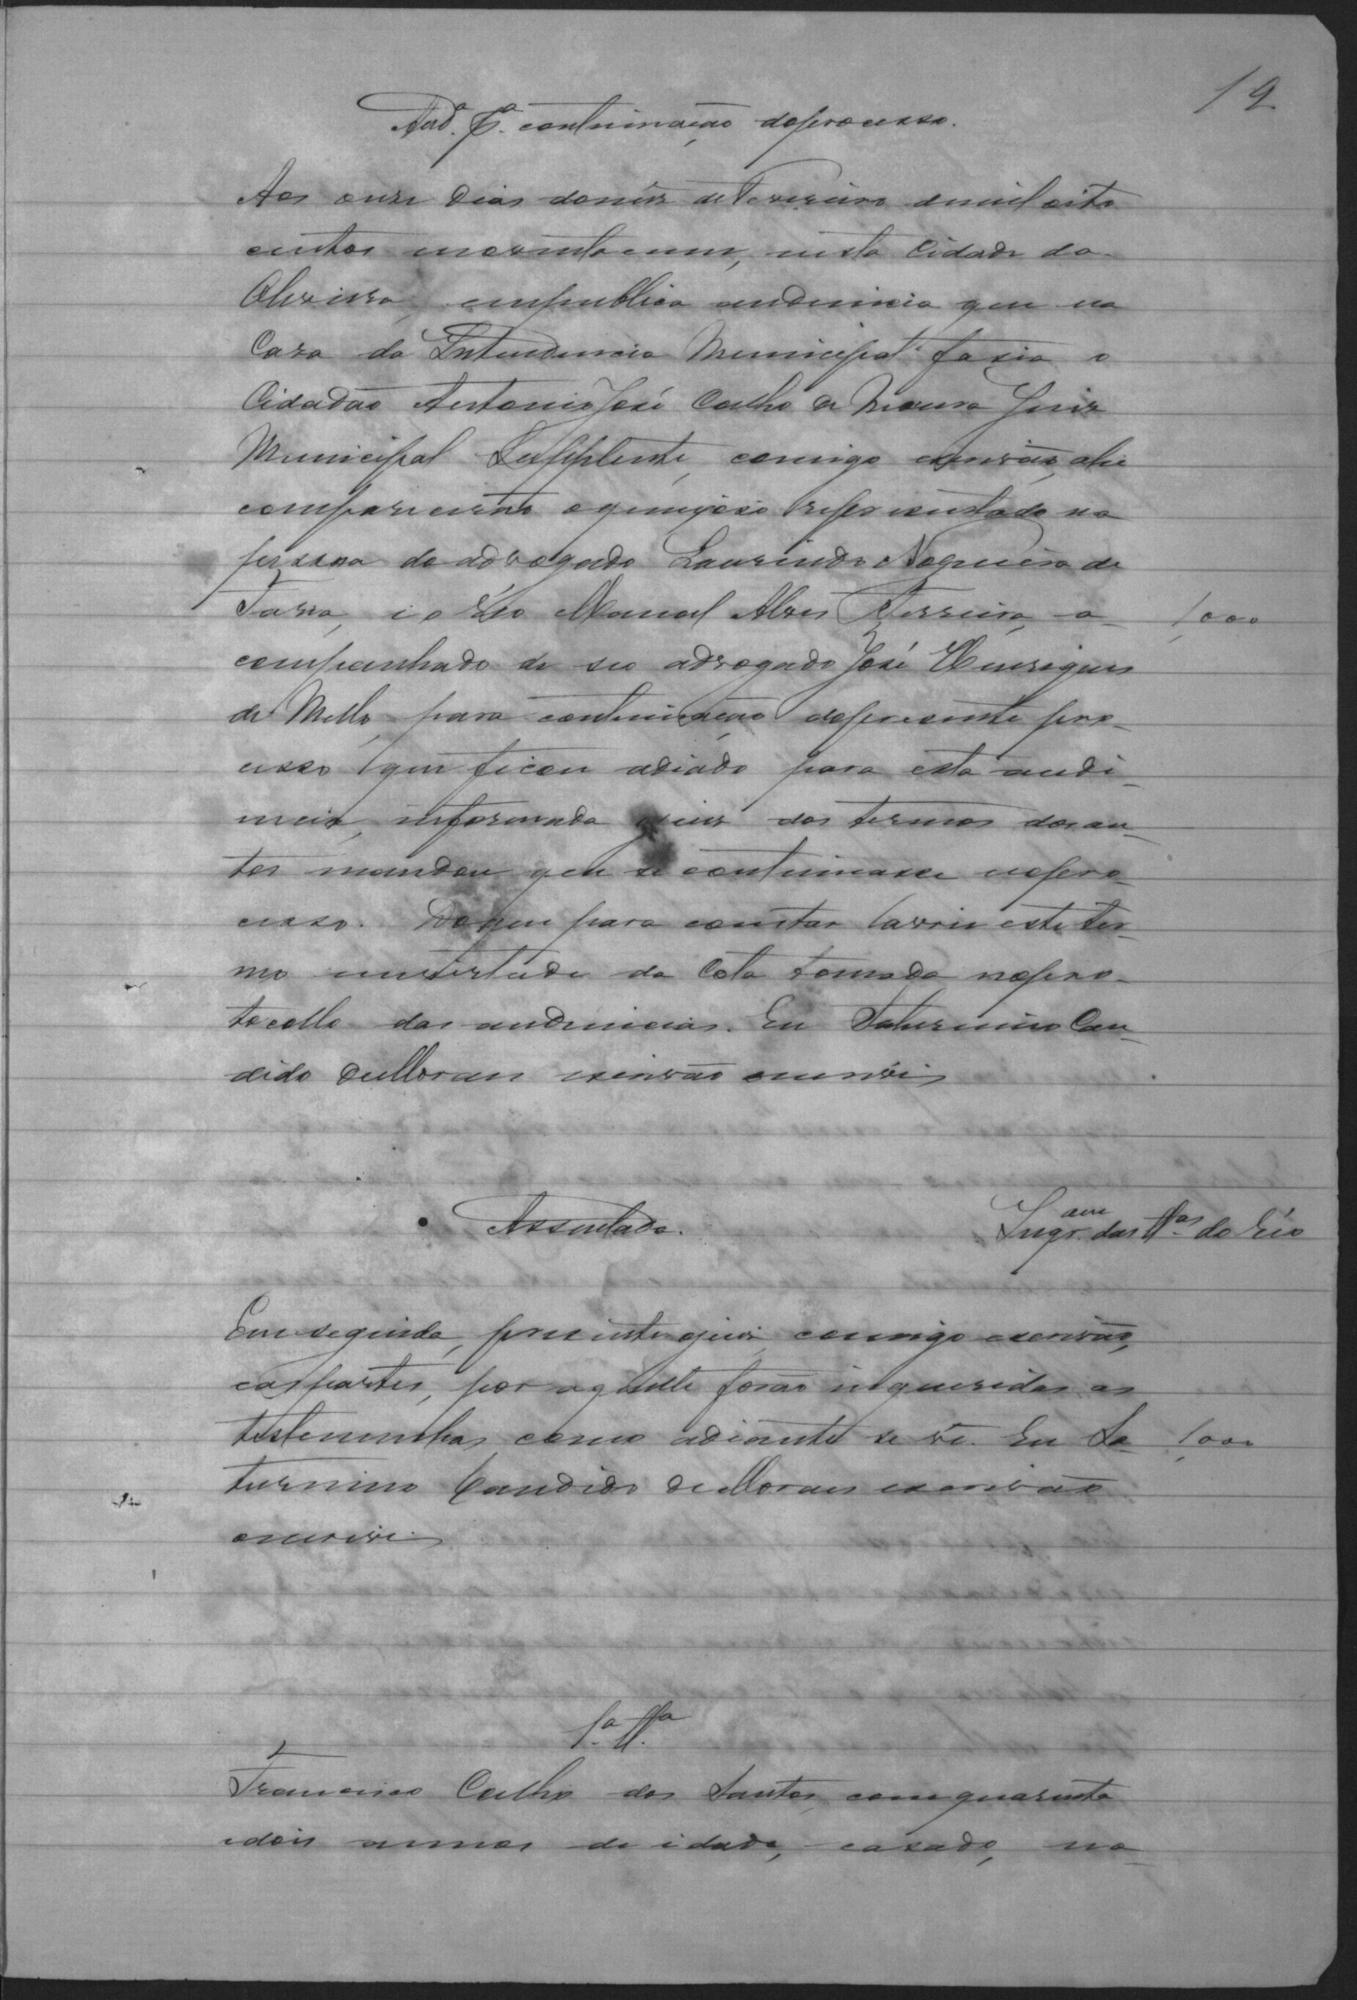 19
Aud.ª p.ª continuação do processo.
Aos onze dias do mez de Fevereiro de mil oito
centos noventa e um, nesta Cidade da
Oliveira, em publica audiencia que na
Casa da Intendencia Municipal fazia o
Cidadão Antonio José Coelho de Moura Juiz
Municipal Supplente, comigo escrivão, ahi
comparecerão o queixoso representado na
pessoa do advogado Laurindo Nogueira de
Faria, e o réo Manoel Alves Ferreira, a- 1,000
companhado de seo advogado José Henriques
de Mello, para continuação do presente pro-
cesso que ficou adiado para esta audi-
encia, informado o juiz dos termos dos au-
tos mandou que se continuasse no pro-
cesso. Do que para constar lavrei este ter-
mo em virtude da Cota tomada no pro-
tocollo das audiencias. Eu Saturnino Can-
dido de Moraes escrivão escrevi
Assentada. Inqr.am das tt.as do réo
Em seguida, presente o juiz, comigo escrivão,
e as partes, por aquelle forão inqueridas as
testemunhas, como adiante se vê. Eu Sa- 1,000
turnino Candido de Moraes escrivão
escrevi.
1.ª tt.ª
Francisco Coelho dos Santos, com quarenta
e dois annos de idade, casado, na-